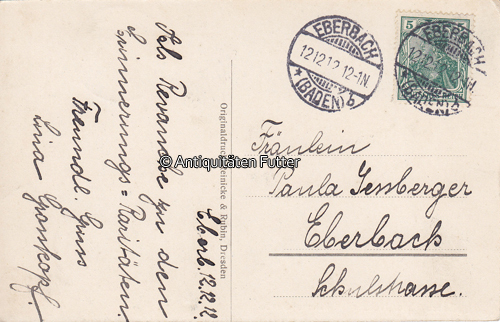 Als Revanche zu den
Erinnerungs=Raritäten.
Freundl. Gruss
Lina Grosskopf
Eberb. 12.12.12.
Originaldruck Reinicke & Rubin, Dresden
© Antiquitäten Futter
5
EBERBACH
12.12.12.12-1N
* (BADEN) b
EBERBACH
12.12.
* (BADEN)
Fräulein
Paula Isenberger
Eberbach
Schulstrasse.